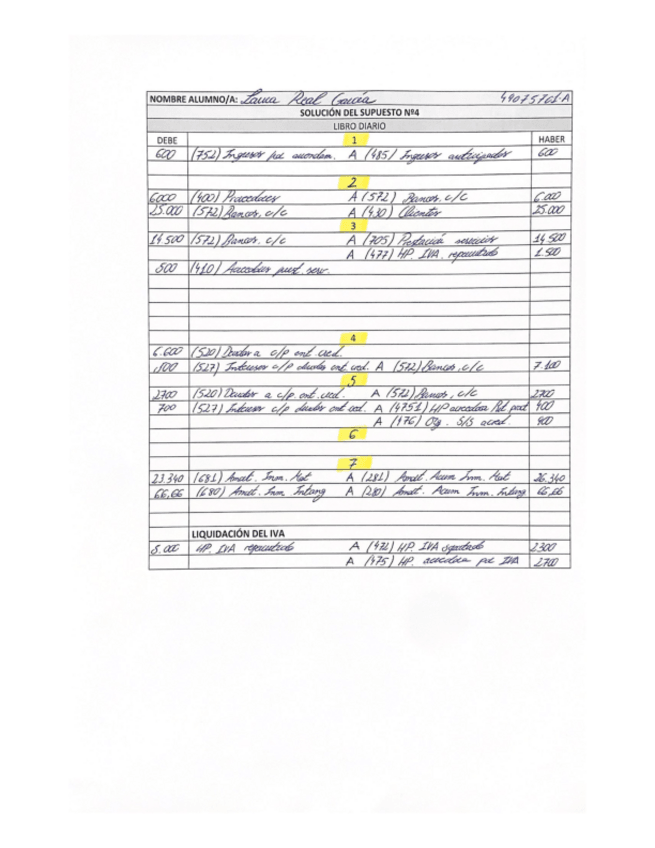 NOMBRE ALUMNO/A: Laura Real García 49075761-A
SOLUCIÓN DEL SUPUESTO Nº4
LIBRO DIARIO
DEBE 1 HABER
600 (752) Ingresos por arrendam. A (485) Ingresos anticipados 600
2
6000 (400) Proveedores A (572) Bancos, c/c 6.000
25.000 (572) Bancos, c/c A (430) Clientes 25.000
3
14.500 (572) Bancos. c/c A (705) Prestación servicios 14.500
A (477) HP. IVA. repercutido 1.500
500 (410) Acreedores prest. serv.
4
6.600 (520) Deudas a c/p ent. cred.
500 (527) Intereses c/p deudas ent. cred. A (572) Bancos, c/c 7.100
5
2700 (520) Deudas a c/p. ent. cred. A (572) Bancos, c/c 2700
700 (527) Intereses c/p deudas ent. cred. A (4751) HP acreedora Ret pact 400
A (476) Org. S/S acred. 400
6
7
23.340 (681) Amort. Inm. Mat A (281) Amort. Acum Inm. Mat 26.340
66,66 (680) Amort. Inm Intang A (280) Amort. Acum Inm. Intang 66,66
LIQUIDACIÓN DEL IVA
5.000 HP. IVA repercutido A (472) HP. IVA soportado 2300
A (475) HP. acreedora por IVA 2700